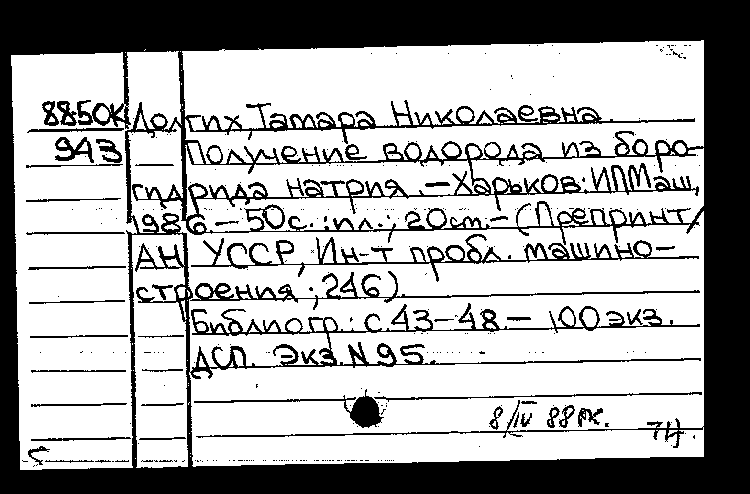 8850К Долгих, Тамара Николаевна.
943 Получение водорода из боро-
гидрида натрия. – Харьков: ИПМаш,
1986. – 50с.: ил.; 20см. – (Препринт/
АН УССР, Ин-т пробл. машино-
строения; 246).
Библиогр.: с. 43-48. – 100 экз.
ДСП. Экз. N 95.
8/IV 88